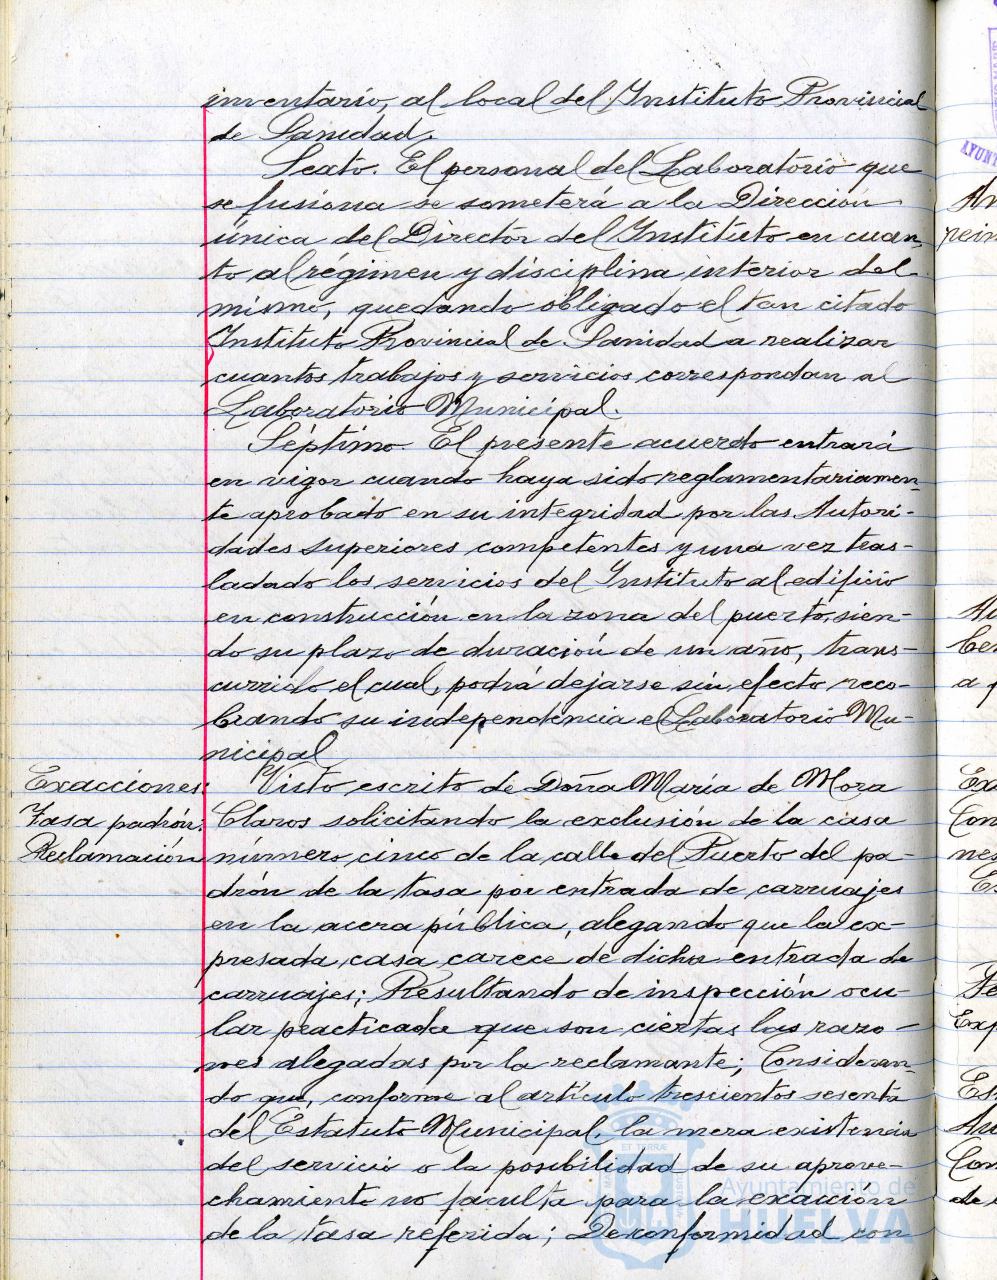 inventario, al local del Instituto Provincial
de Sanidad.
Sexto. El personal del Laboratorio que
se fusiona se someterá a la Dirección
única del Director del Instituto en cuan-
to al régimen y disciplina interior del
mismo, quedando obligado el tan citado
Instituto Provincial de Sanidad a realizar
cuantos trabajos y servicios correspondan al
Laboratorio Municipal.
Séptimo. El presente acuerdo entrará
en vigor cuando haya sido reglamentariamen-
te aprobado en su integridad por las Autori-
dades superiores competentes y una vez tras-
ladado los servicios del Instituto al edificio
en construcción en la zona del puerto, sien-
do su plazo de duración de un año, trans-
currido el cual, podrá dejarse sin efecto reco-
brando su independencia el Laboratorio Mu-
nicipal
Exacciones:
Tasa padrón.
Reclamación
Visto escrito de Doña María de Mora
Claros solicitando la exclusión de la casa
número cinco de la calle del Puerto del pa-
drón de la tasa por entrada de carruajes
en la acera pública, alegando que la ex-
presada casa carece de dicha entrada de
carruajes; Resultando de inspección ocu-
lar practicada que son ciertas las razo-
nes alegadas por la reclamante; Consideran-
do que, conforme al artículo trescientos sesenta
del Estatuto Municipal, la mera existencia
del servicio o la posibilidad de su aprove-
chamiento no faculta para la exacción
de la tasa referida; De conformidad con
Ayuntamiento de
HUELVA